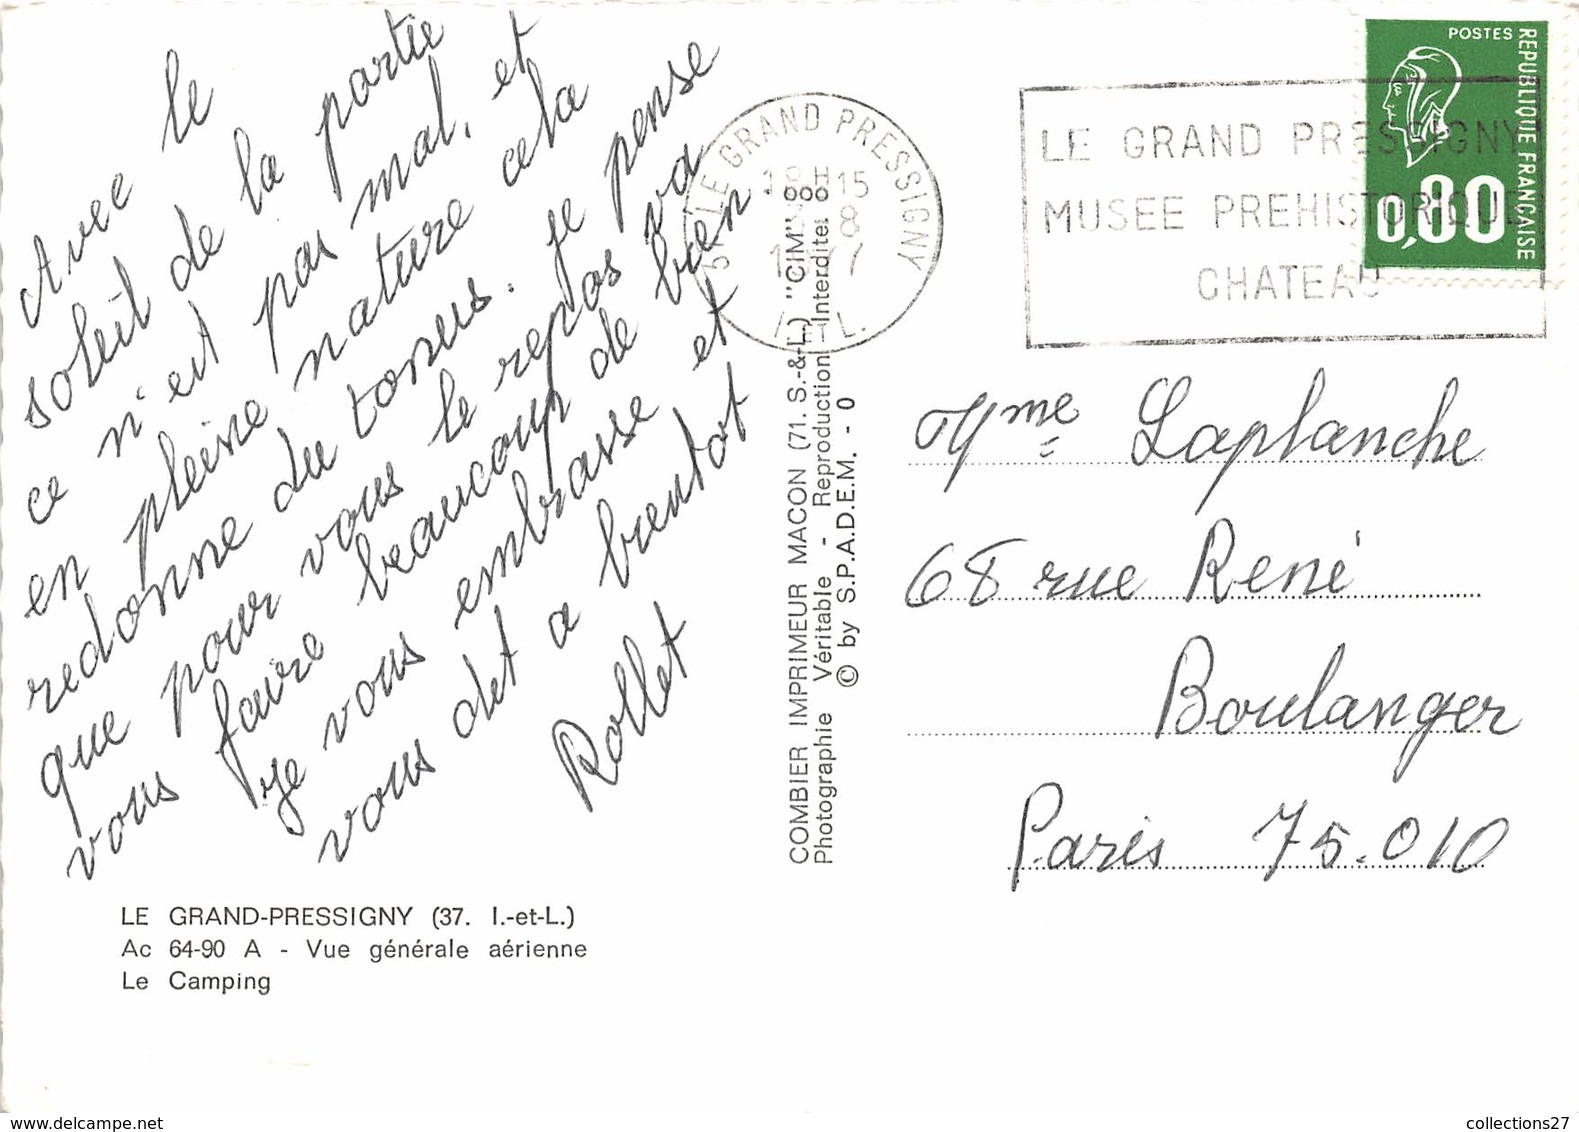 Avec le
soleil de la partie
ce n'est pas mal, et
en pleine nature cela
redonne du tonus. Je pense
que pour vous le repos va
vous faire beaucoup de bien.
Je vous embrasse et
vous dit a bientot
Rollet
LE GRAND-PRESSIGNY (37. I.-et-L.)
Ac 64-90 A - Vue générale aérienne
Le Camping
COMBIER IMPRIMEUR MACON (71. S.-&-L.) "CIM"
Photographie Véritable - Reproduction Interdite
© by S.P.A.D.E.M. - 0
LE GRAND PRESSIGNY
18H15
8
I.-ET-L.
LE GRAND PRESSIGNY
MUSEE PREHISTORIQUE
CHATEAU
POSTES
REPUBLIQUE FRANÇAISE
0,80
Mme Laplanche
68 rue René
Boulanger
Paris 75.010
collections27